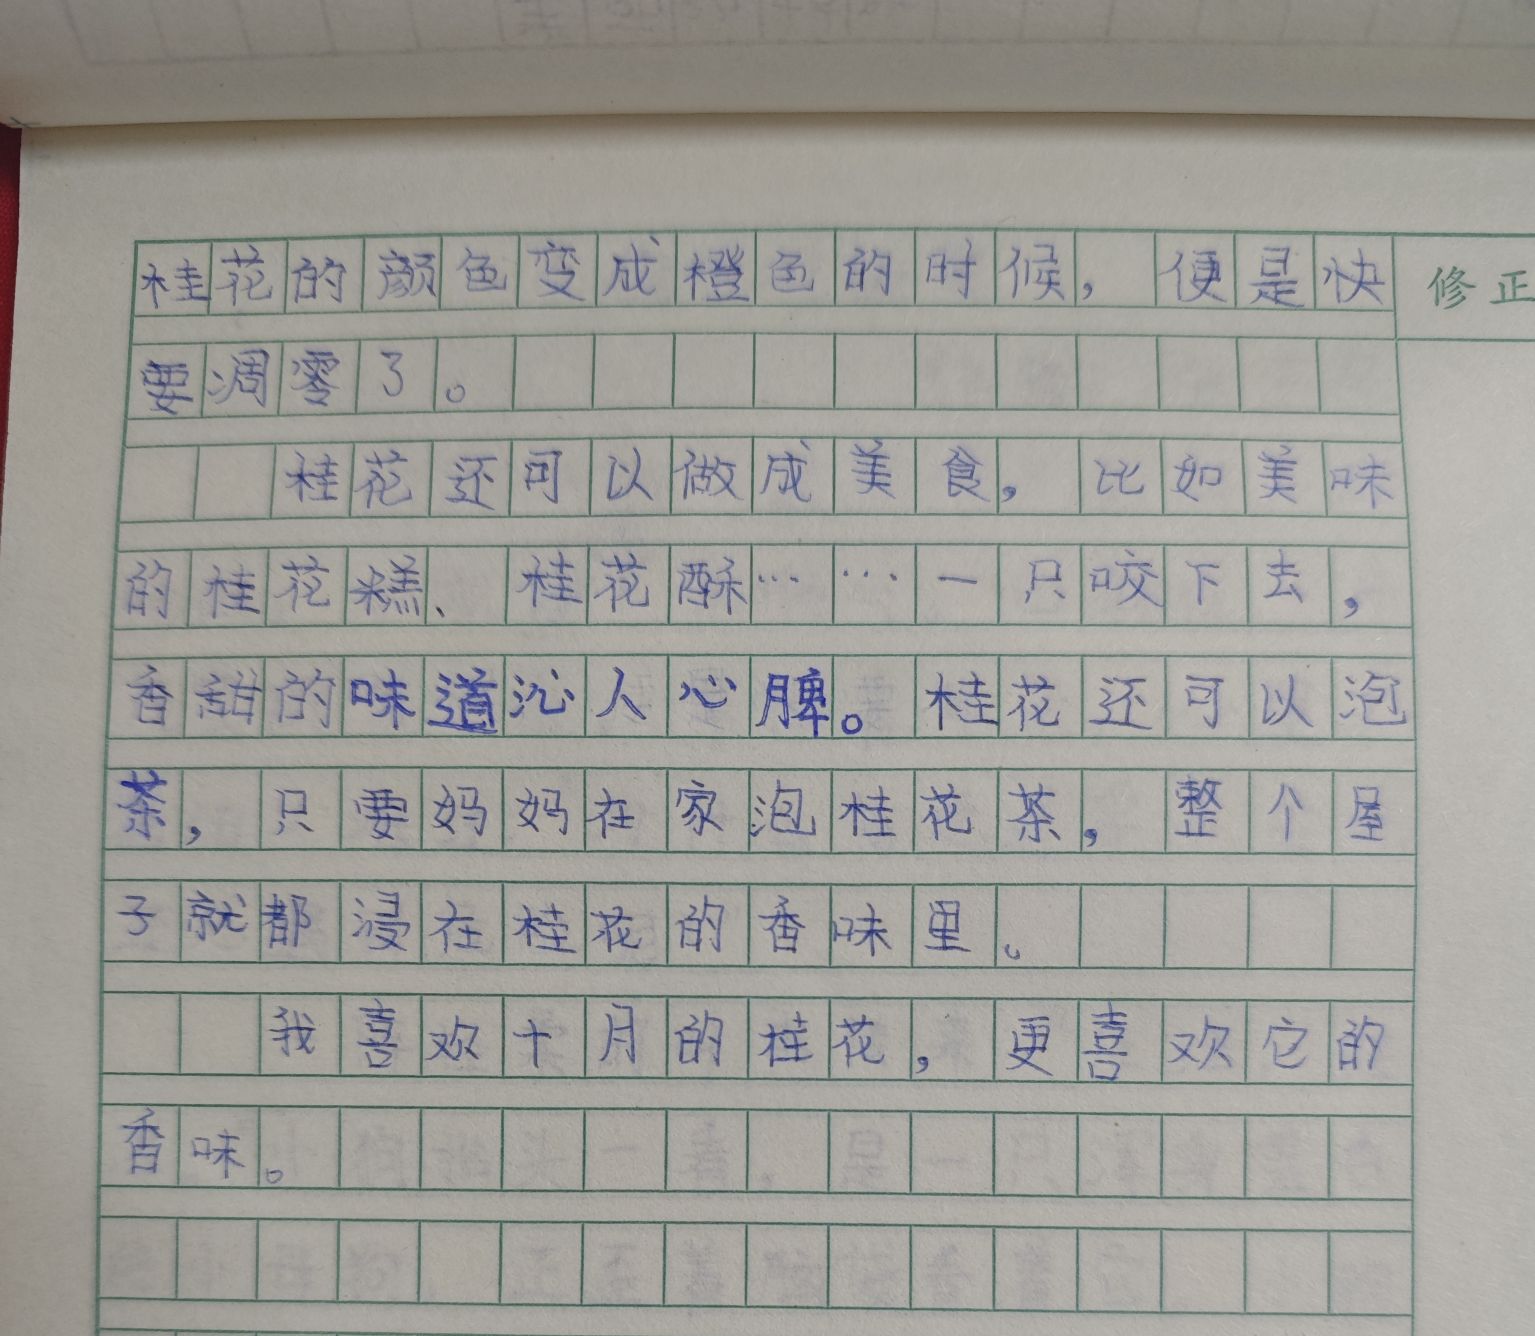 桂花的颜色变成橙色的时候，便是快
修正
要凋零了。
桂花还可以做成美食，比如美味
的桂花糕、桂花酥……一只咬下去，
香甜的味道沁人心脾。桂花还可以泡
茶，只要妈妈在家泡桂花茶，整个屋
子就都浸在桂花的香味里。
我喜欢十月的桂花，更喜欢它的
香味。